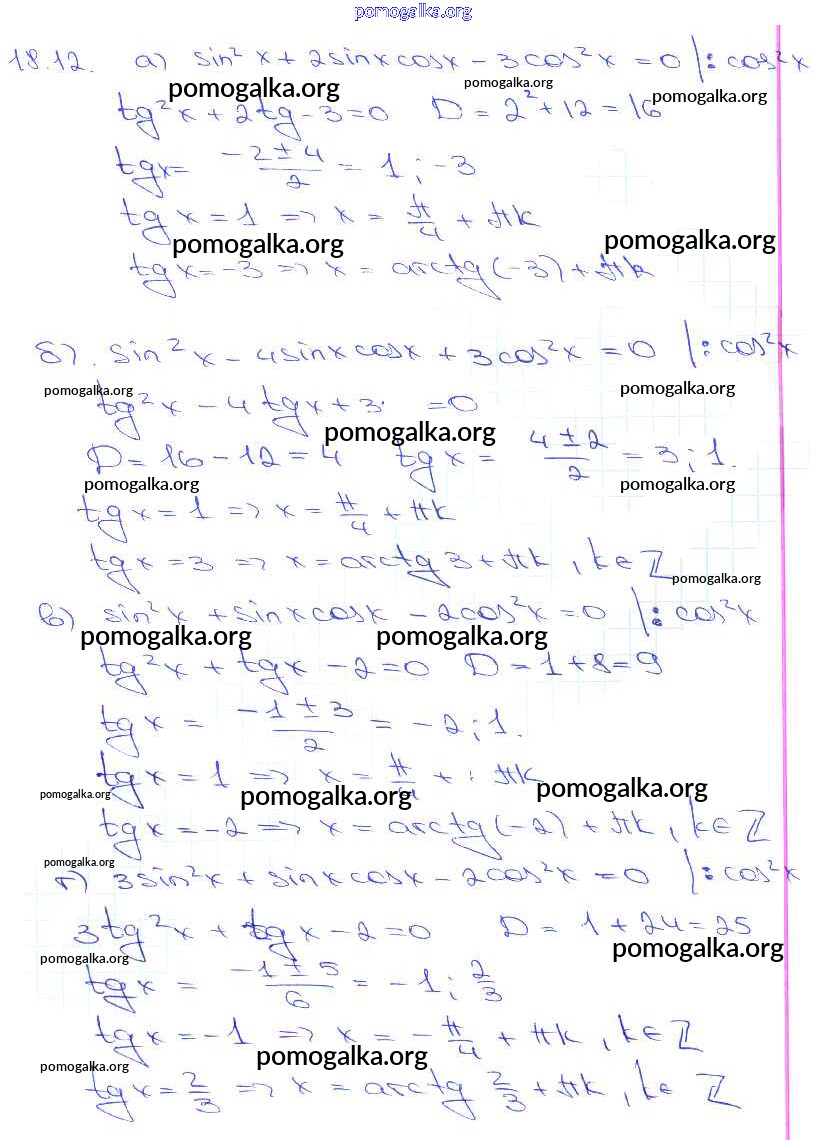 pomogalka.org
18.12. а) sin²x + 2sinxcosx - 3cos²x = 0 |: cos²x
pomogalka.org pomogalka.org pomogalka.org
tg²x + 2tg - 3 = 0 D = 2² + 12 = 16
tgx = (-2 ± 4)/2 = 1 ; -3
tgx = 1 => x = π/4 + πk
pomogalka.org pomogalka.org
tgx = -3 => x = arctg(-3) + πk
б). sin²x - 4sinxcosx + 3cos²x = 0 |: cos²x
pomogalka.org pomogalka.org
tg²x - 4tgx + 3 = 0
pomogalka.org
D = 16 - 12 = 4 tgx = (4 ± 2)/2 = 3 ; 1.
pomogalka.org pomogalka.org
tgx = 1 => x = π/4 + πk
tgx = 3 => x = arctg 3 + πk , k ∈ Z
pomogalka.org
в) sin²x + sinxcosx - 2cos²x = 0 |: cos²x
pomogalka.org pomogalka.org
tg²x + tgx - 2 = 0 D = 1 + 8 = 9
tgx = (-1 ± 3)/2 = -2 ; 1.
tgx = 1 => x = π/4 + πk
pomogalka.org pomogalka.org pomogalka.org
tgx = -2 => x = arctg(-2) + πk , k ∈ Z
pomogalka.org
г) 3sin²x + sinxcosx - 2cos²x = 0 |: cos²x
3tg²x + tgx - 2 = 0 D = 1 + 24 = 25
pomogalka.org pomogalka.org
tgx = (-1 ± 5)/6 = -1 ; 2/3
tgx = -1 => x = -π/4 + πk , k ∈ Z
pomogalka.org pomogalka.org
tgx = 2/3 => x = arctg 2/3 + πk , k ∈ Z